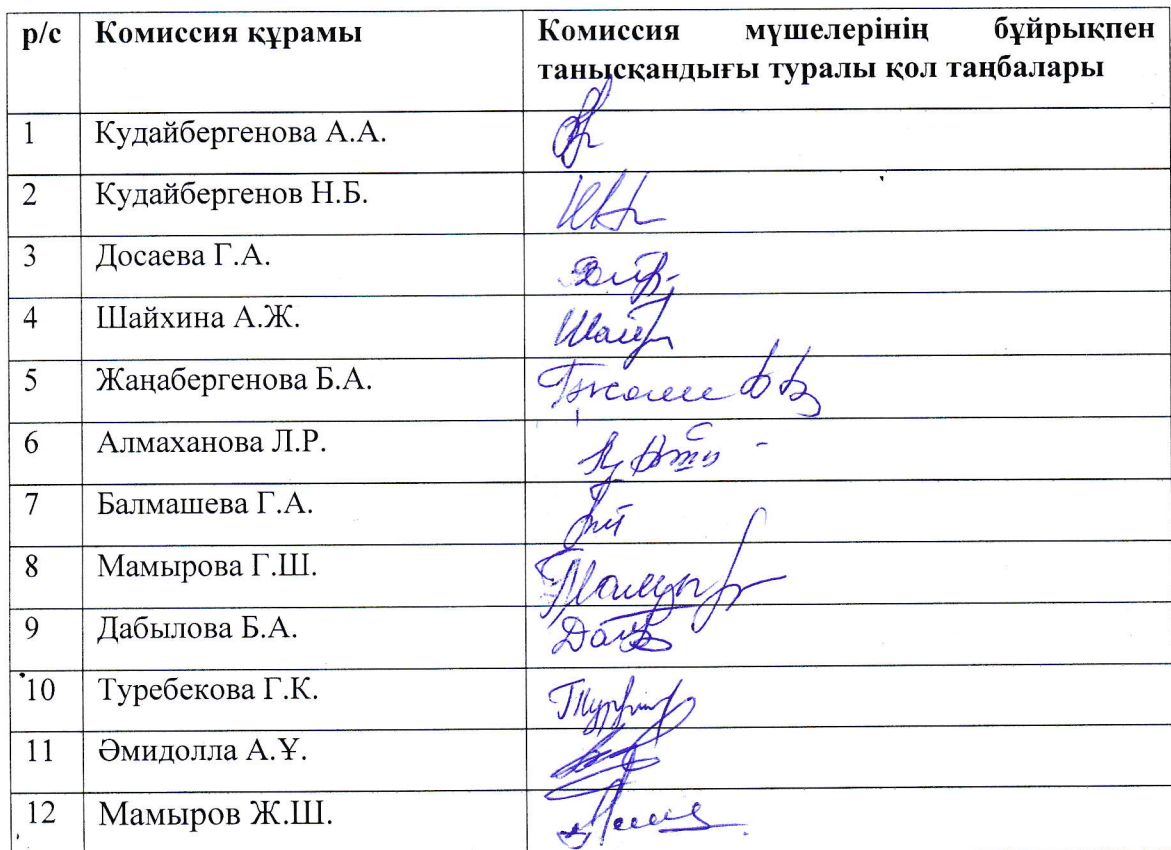 р/с Комиссия құрамы Комиссия мүшелерінің бұйрықпен
танысқандығы туралы қол таңбалары
1 Кудайбергенова А.А.
2 Кудайбергенов Н.Б.
3 Досаева Г.А.
4 Шайхина А.Ж.
5 Жаңабергенова Б.А.
6 Алмаханова Л.Р.
7 Балмашева Г.А.
8 Мамырова Г.Ш.
9 Дабылова Б.А.
10 Туребекова Г.К.
11 Әмидолла А.Ұ.
12 Мамыров Ж.Ш.